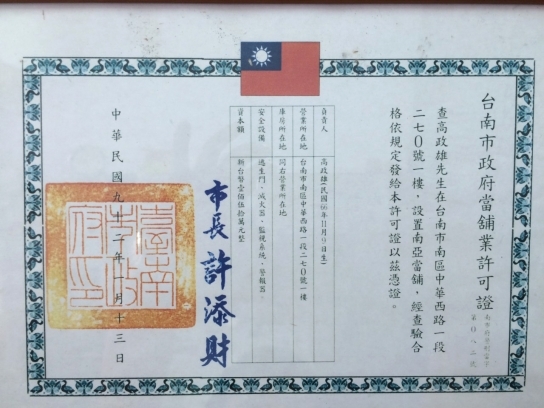 台南市政府當舖業許可證
查高政雄先生在台南市南區中華西路一段
二七0號一樓，設置南亞當舖，經查驗合
格依規定發給本許可證以茲憑證。
負責人 高政雄(民國66年11月9日生)
營業所在地 台南市南區中華西路一段二七0號一樓
庫房所在地 同右營業所在地
安全設備 逃生門、滅火器、監視系統、警報器。
資本額 新台幣壹佰伍拾萬元整
市長 許添財
臺南市政府印
中華民國九十二年一月十三日